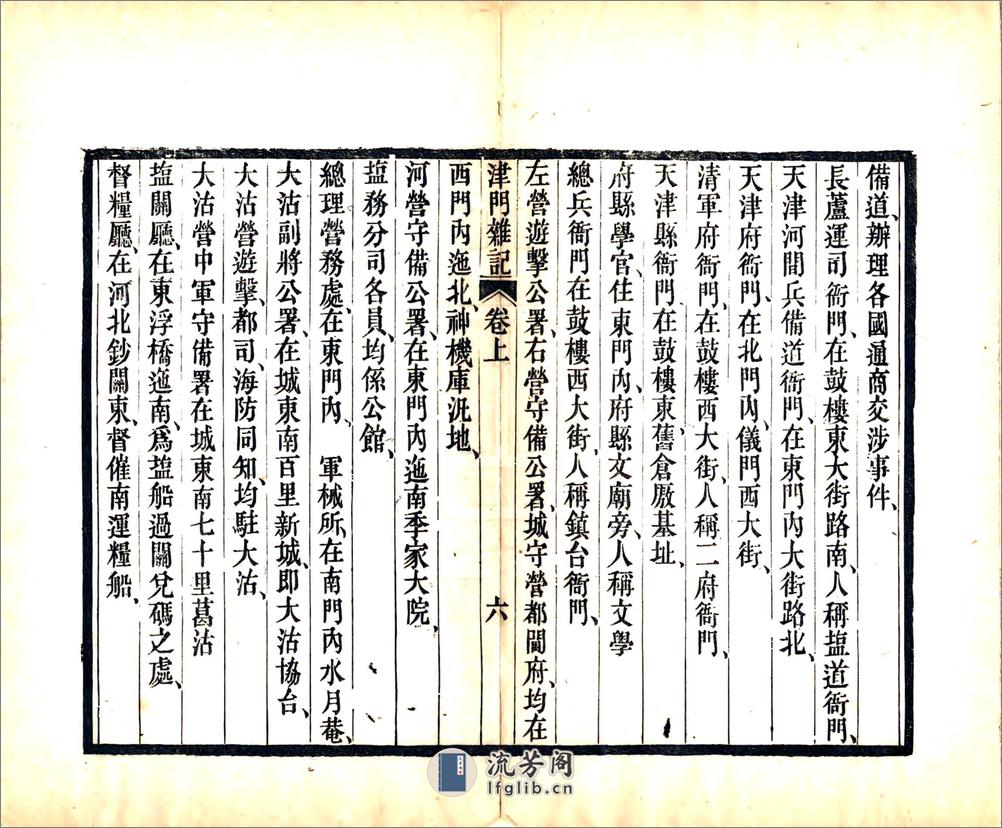 備道、辦理各國通商交涉事件、
長蘆運司衙門、在鼓樓東大街路南、人稱塩道衙門、
天津河間兵備道衙門、在東門內大街路北、
天津府衙門、在北門內、儀門西大街、
清軍府衙門、在鼓樓西大街、人稱二府衙門、
天津縣衙門、在鼓樓東、舊倉廒基址、
府縣學官、住東門內、府縣文廟旁、人稱文學
總兵衙門在鼓樓西大街、人稱鎮台衙門、
左營遊擊公署、右營守備公署、城守營都閫府、均在
津門雜記 卷上 六
西門內迤北、神機庫汛地、
河營守備公署、在東門內迤南季家大院、
塩務分司各員、均係公館、
總理營務處、在東門內、 軍械所、在南門內水月菴、
大沽副將公署、在城東南百里新城、即大沽協台、
大沽營遊擊、都司、海防同知、均駐大沽、
大沽營中軍守備署在城東南七十里葛沽
塩關廳、在東浮橋迤南、爲塩船過關兌碼之處、
督糧廳、在河北鈔關東、督催南運糧船、
流芳阁
lfglib.cn